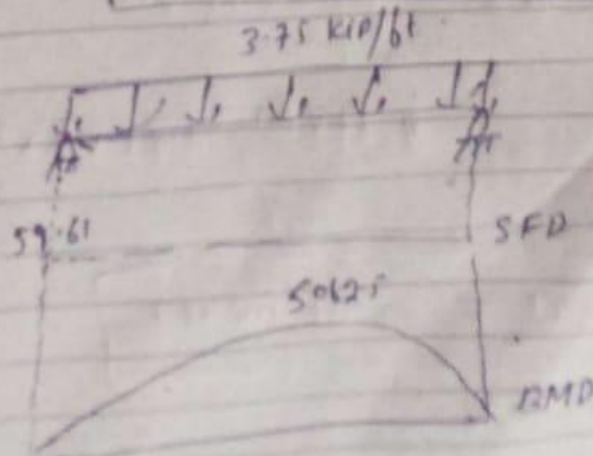 3.75 kip/ft
59.61
SFD
5062.5
BMD